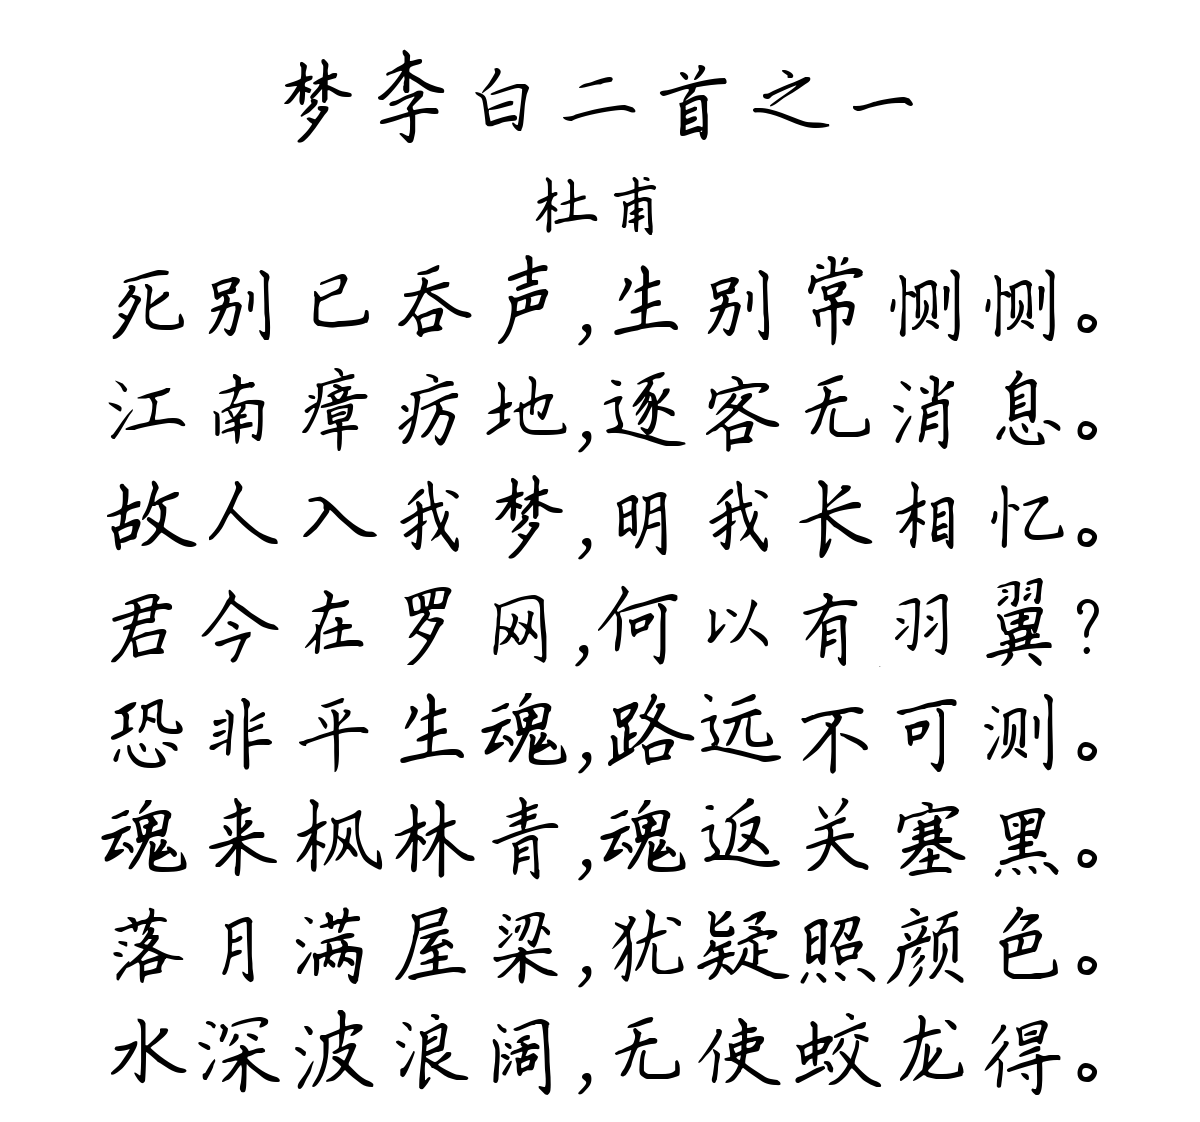 梦李白二首之一
杜甫
死别已吞声,生别常恻恻。
江南瘴疠地,逐客无消息。
故人入我梦,明我长相忆。
君今在罗网,何以有羽翼?
恐非平生魂,路远不可测。
魂来枫林青,魂返关塞黑。
落月满屋梁,犹疑照颜色。
水深波浪阔,无使蛟龙得。